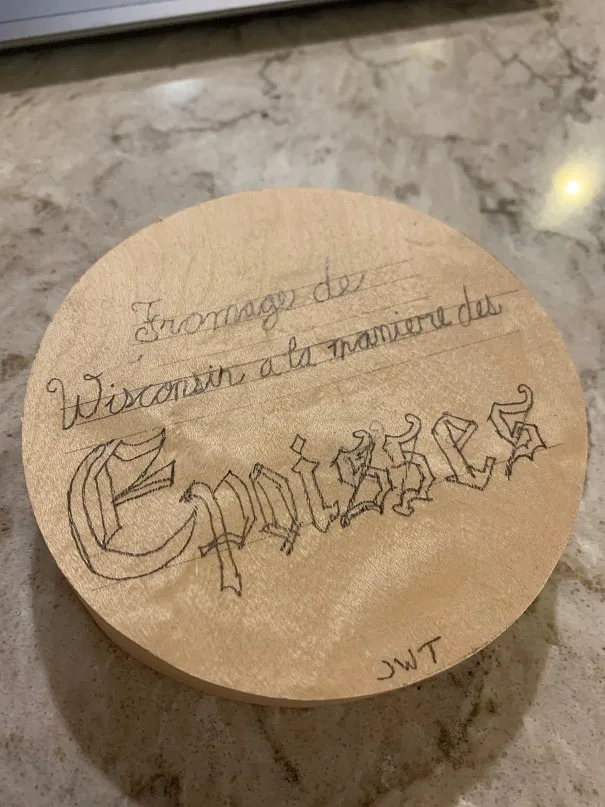 Fromage de
Wisconsin a la maniere des
Epoisses
JWT